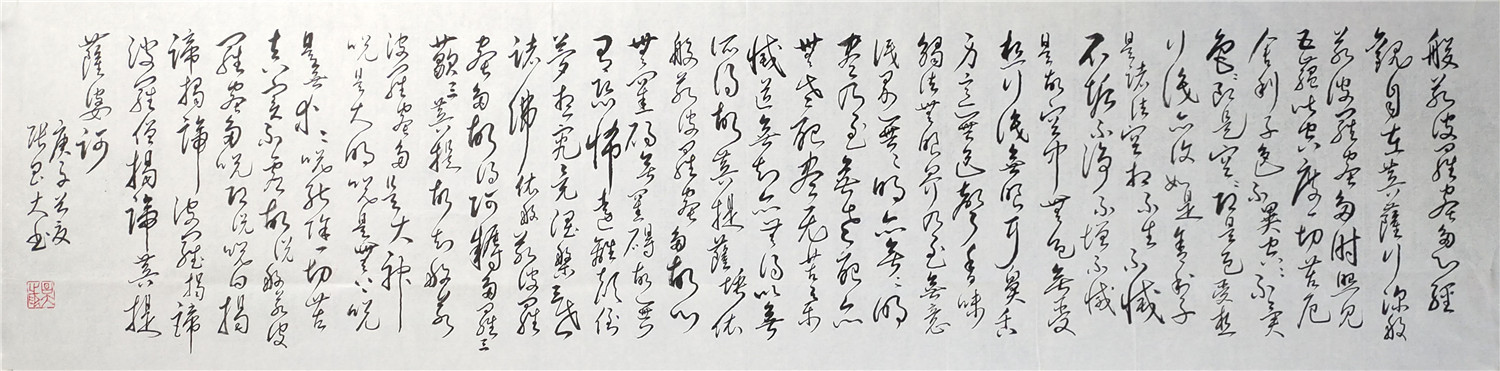 般若波羅蜜多心經
觀自在菩薩行深般
若波羅蜜多時照見
五蘊皆空度一切苦厄
舍利子色不異空空不異
色色即是空空即是色受想
行識亦復如是舍利子
是諸法空相不生不滅
不垢不淨不增不減
是故空中無色無受
想行識無眼耳鼻舌
身意無色聲香味
觸法無眼界乃至無意
識界無無明亦無無明
盡乃至無老死亦
無老死盡無苦集
滅道無智亦無得以無
所得故菩提薩埵依
般若波羅蜜多故心
無罣礙無罣礙故無
有恐怖遠離顛倒
夢想究竟涅槃三世
諸佛依般若波羅
蜜多故得阿耨多羅三
藐三菩提故知般若
波羅蜜多是大神
呪是大明呪是無上呪
是無等等呪能除一切苦
真實不虛故說般若波
羅蜜多呪即說呪曰揭
諦揭諦波羅揭諦
波羅僧揭諦菩提
薩婆訶
庚子夏
張大書